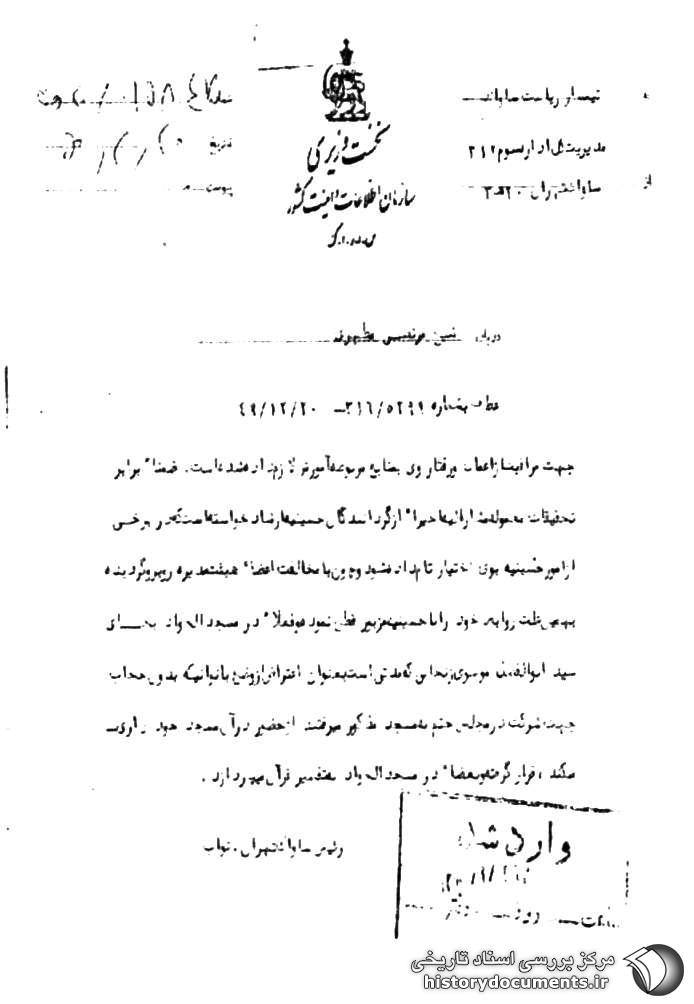 تیمسار ریاست ساواک
مدیریت کل اداره سوم ۳۱۲
از ساواک تهران ۲۰ ه ۳
شماره
تاریخ
پیوست
نخست وزیری
سازمان اطلاعات و امنیت کشور
س.ا.و.ا.ک
درباره شیخ مرتضی مطهری
عطف بشماره ۳۱۶/۵۲۹۹ – ۴۹/۱۲/۲۰
جهت مراقبت از اعمال و رفتار وی بمنابع مربوطه آموزش لازم داده شده است. ضمنا" برابر
تحقیقات معموله مشارالیه اخیرا" از گردانندگان حسینیه ارشاد خواسته است که در برخی
از امور حسینیه بوی اختیار تام داده شود و چون با مخالفت اعضاء هیئت مدیره روبرو گردیده
بهمین علت روابط خود را با حسینیه مزبور قطع نموده و فعلا" در مسجد الجواد بجـــای
سید ابوالفضل موسوی زنجانی که مدتی است بعنوان اعتراض از وضع بانوانیکه بدون حجاب
جهت شرکت در مجلس ختم به مسجد مذکور میرفتند از حضور در آن مسجد خود داری
میکند ، قرار گرفته و بعضا" در مسجد الجواد بتفسیر قرآن میپردازد .
رئیس ساواک تهران . نواب
وارد شد
مرکز بررسی اسناد تاریخی
historydocuments.ir